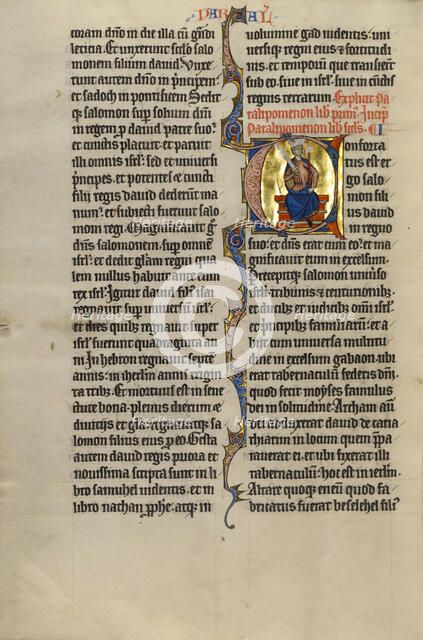 PAR AL
coram dño in die illa cū grādi
leticia. Et unxerunt scđo salo
monem filium dauid. Unxe
runt autem dño in principem:
et sadoch in pontificem. Sedit
q; salomon sup solium dñi
in regem p dauid patre suo:
et cunctis placuit: et paruit
illi omnis isrl. Sed et uniuersi
principes. et potentes. et cuncti
filij regis dauid dederunt ma
num: et subiecti fuerunt salo
moni regi. Magnificauit g̃
dñs salomonem sup omnē
isrl: et dedit glām regni qua
lem nullus habuit ante eum
rex isrl. Igitur dauid fili' isai
regnauit sup uniuersū isrl:
et dies quib; regnauit super
isrl fuerunt quadraginta an
ni. In hebron regnauit septē
annis: in ierlm annis trigin
ta trib;. Et mortuus est in sene
ctute bona. plenus dierum et
diuitijs et gla. regnauitq; sa
lomon filius eius p eo. Gesta
autem dauid regis priora et
nouissima scripta sunt in li
bro samuhel uidentis. et in
libro nathan pphe. atq; in
uolumine gad uidentis: uni
uersiq; regni eius et fortitudi
nis. et temporū que transier̄t
sub eo. siue in isrl. siue in cūctis
regnis terrarum. Explicit Pa
ralipomenon lib' prim'. Incip
Paralipomenon lib' scđs.
Confortatus
est er
go salo
mon fili
us dauid
in regno
suo: et dñs erat cum eo. et ma
gnificauit eum in excelsum.
Precepitq; salomon uniūso
isrl. tribunis et centurionib;.
et ducib; et iudicib; omī isrl.
et principib; familiarū: et a
bijt cum uniuersa multitu
dine in excelsum gabaon. ubi
erat tabernaculū federis dñi.
quod fecit moyses famulus
dei in solitudine. Archam aut
dei adduxerat dauid de caria
thiarim in locum quem ppa
rauerat ei. et ubi fixerat illi
tabernaculū: hoc est in ierlm.
Altare quoq; eneū quod fa
bricatus fuerat beselehel fili'